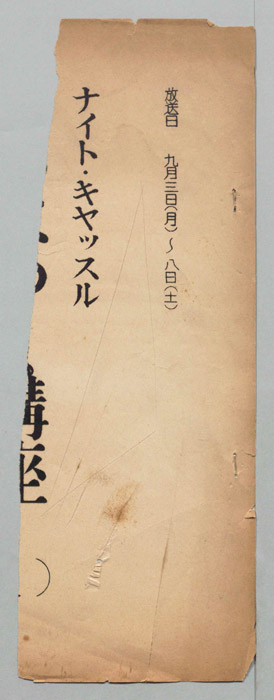 放送日　九月三日(月)～八日(土)
ナイト・キャッスル
講座